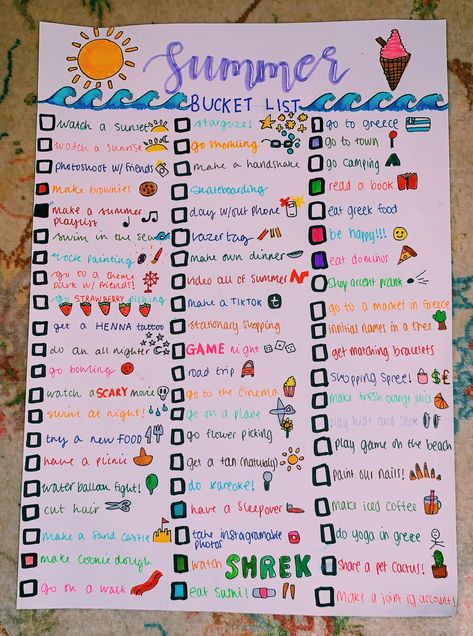 Summer
BUCKET LIST
watch a sunset
watch a sunrise
photoshoot w/ friends
make brownies
make a summer
playlist
swim in the sea
rock painting
go to a theme
park w/ friends!
go STRAWBERRY picking
get a HENNA tattoo
do an all nighter
go bowling
watch a SCARY movie
swim at night!
try a new FOOD
have a picnic
water balloon fight!
cut hair
make a sand castle
make cookie dough
go on a walk
stargaze!
go snorkling
make a handshake
skateboarding
day w/out phone
Lazer tag
make own dinner
video all of summer
make a TIKTOK
stationary shopping
GAME night
road trip
go to the cinema
go on a plane
go flower picking
get a tan (naturally)
do kareoke!
have a sleepover
take instagramable
photos
watch SHREK
eat sushi!
go to greece
go to town
go camping
read a book
eat greek food
be happy!!!
eat dominos
Shop accent prank
go to a market in Greece
initial names in a tree
get matching bracelets
Shopping Spree!
make fresh orange juice
play hide and seek
play game on the beach
paint our nails!
make iced coffee
do yoga in greece
Share a pet cactus!
Make a joint ig account!